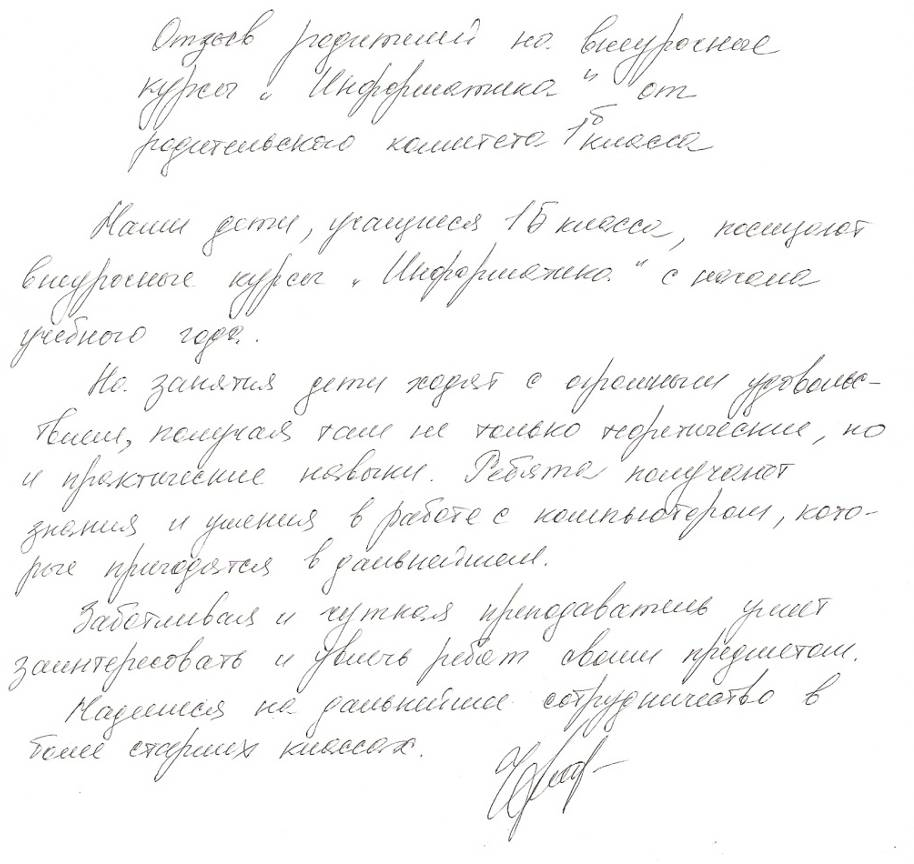 Отзыв родителей на внеурочные
курсы „Информатика" от
родительского комитета 1б класса
Наши дети, учащиеся 1Б класса, посещают
внеурочные курсы „Информатика" с начала
учебного года.
На занятия дети ходят с огромным удовольс-
твием, получая там не только теоретические, но
и практические навыки. Ребята получают
знания и умения в работе с компьютером, кото-
рые пригодятся в дальнейшем.
Заботливая и чуткая преподаватель умеет
заинтересовать и увлечь ребят своим предметом.
Надеемся на дальнейшее сотрудничество в
более старших классах.